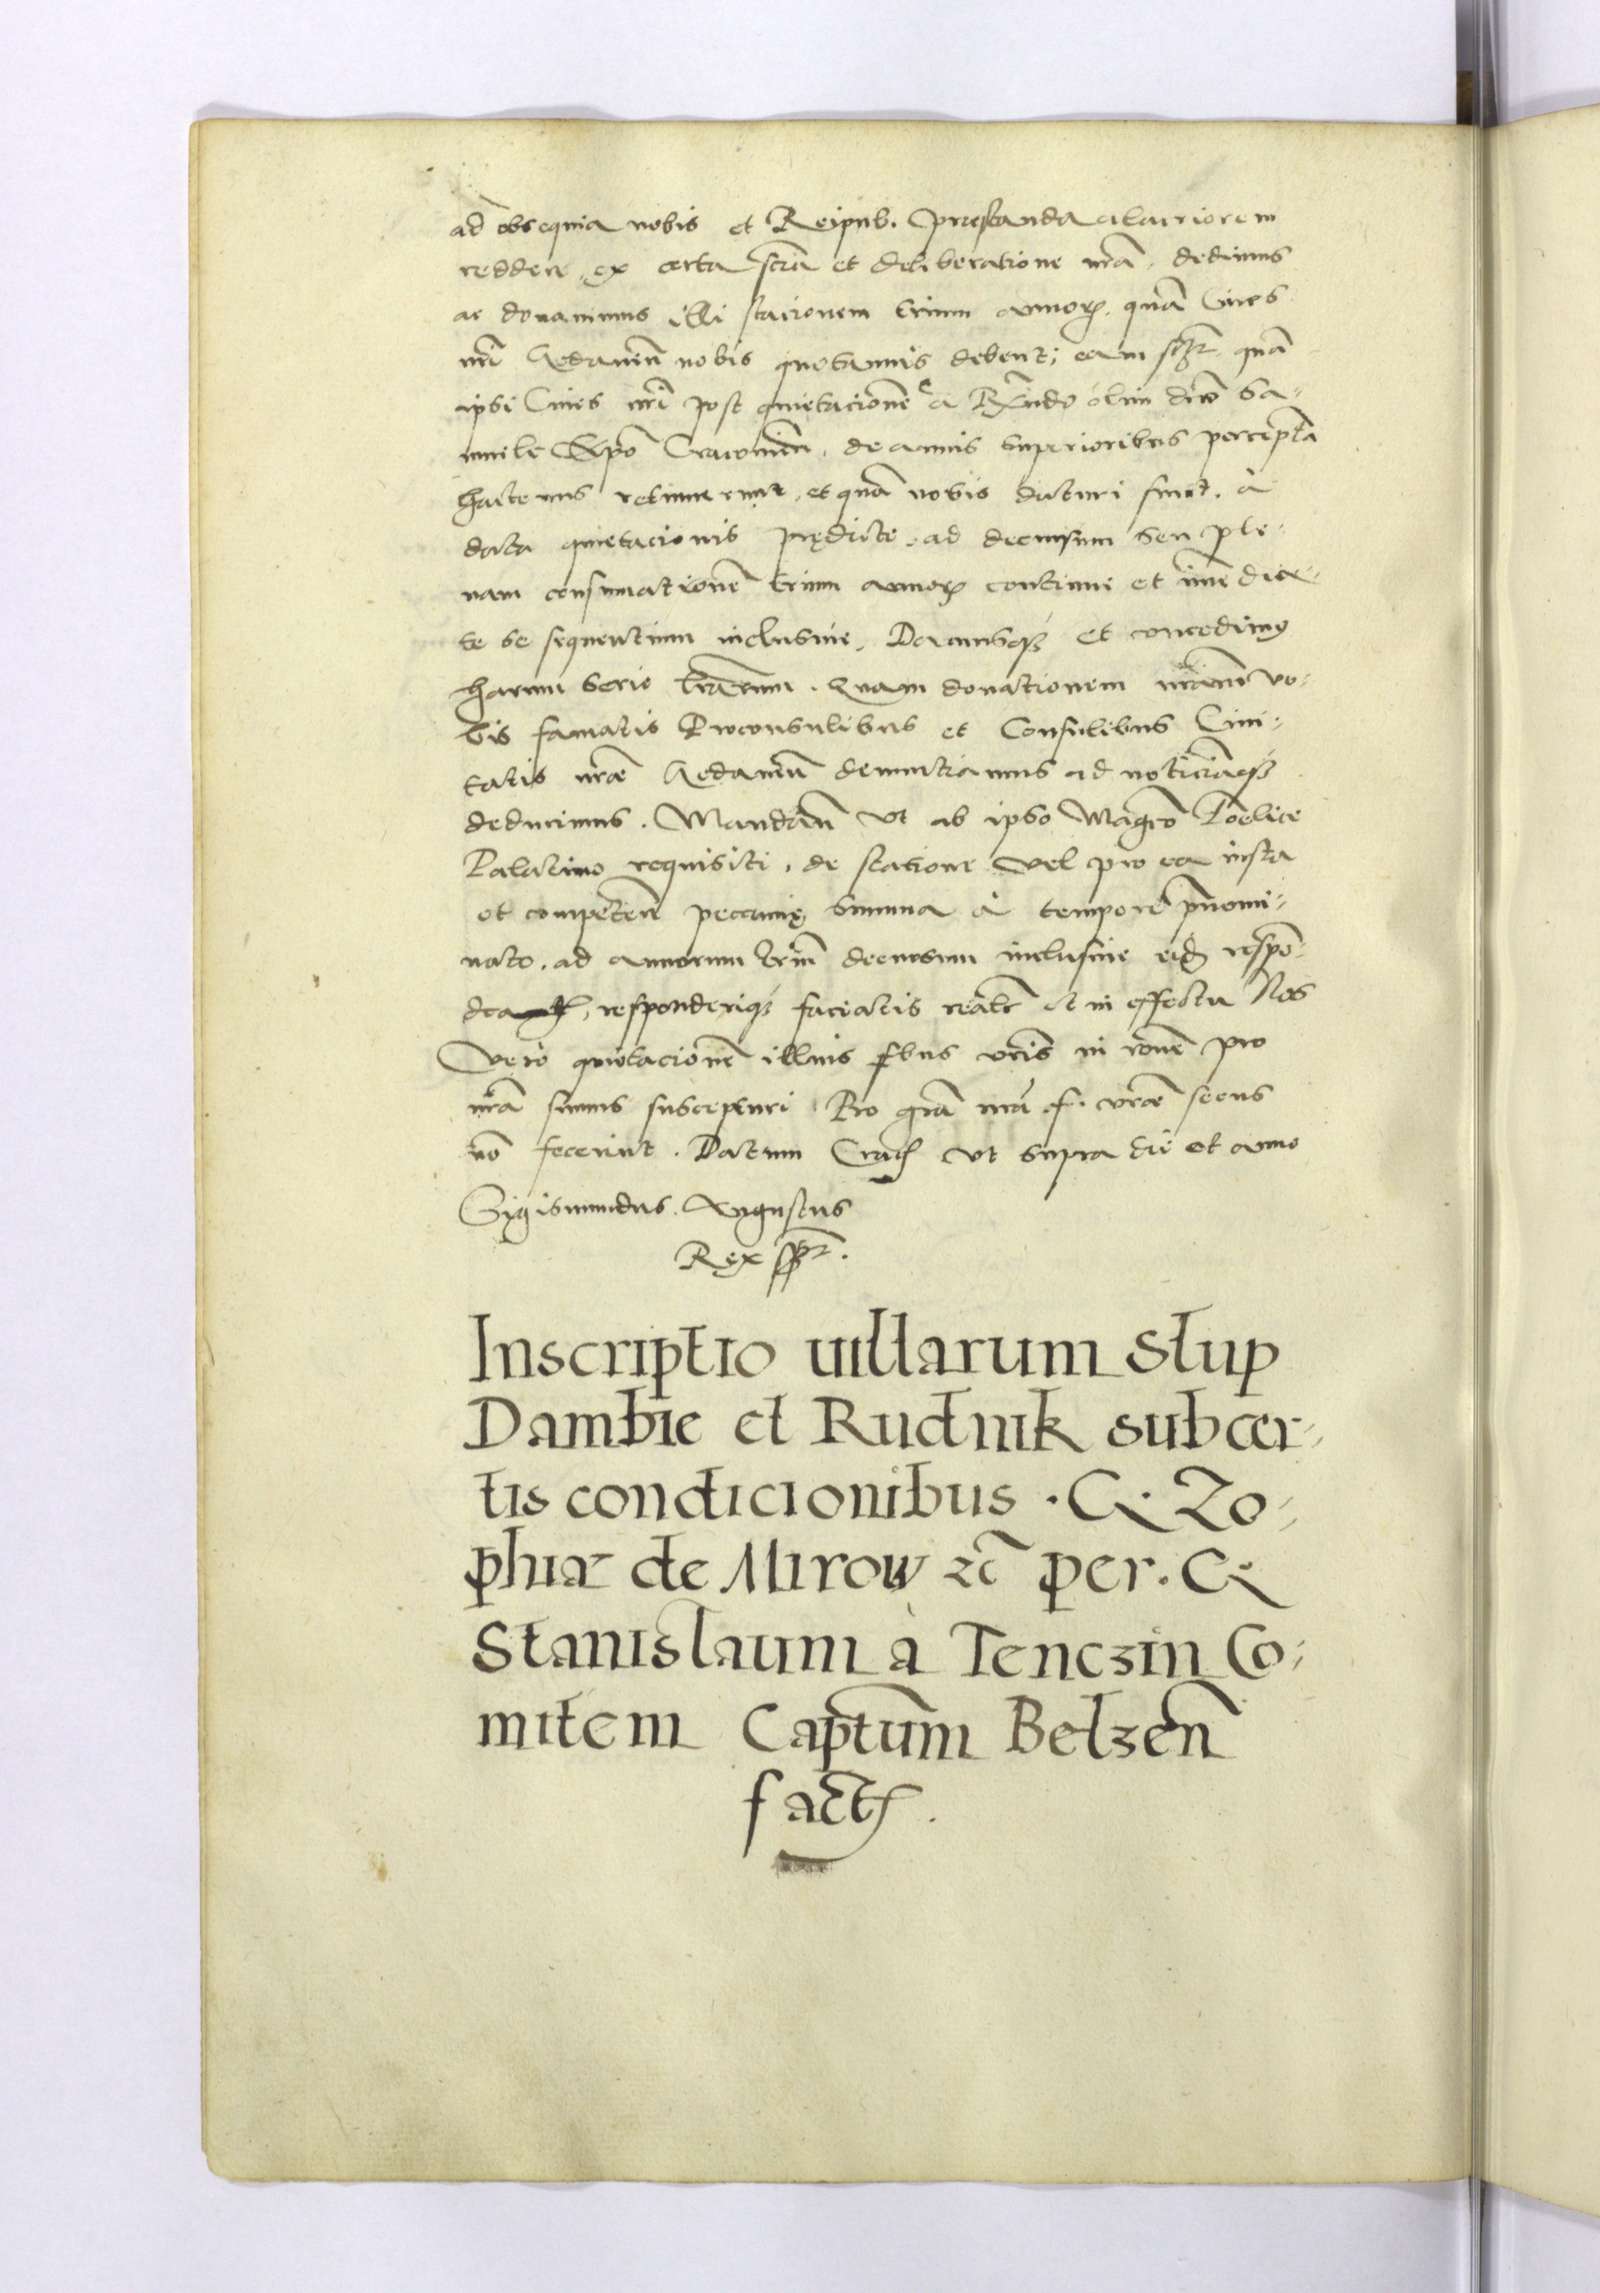 ad obsequia nobis et Reipub. præstanda alacriorem
reddere, ex certa scia et deliberatione nrã, dedimus
ac donavimus illi stacionem trium annor, quã Cives
nri Gedanen nobis quotannis debent; eam scz, quã
ipsi Cives nri post quietacionẽ a Rndo olim dno Sa-
muele Epo Cracovien, de annis superioribus perceptã
hactenus retinuerunt, et quã nobis daturi sunt, à
data quietacionis prædicte, ad decursum seu ple-
nam consumationẽ trium annor continue et imẽdia-
te se sequentium inclusive. Damusqz et concedimus
harum serie lrarum. Quam donationem nram vo-
bis famatis Proconsulibus et Consulibus Civi-
tatis nræ Gedanen denunctiamus ad noticiãqz
deducimus. Mandan vt ab ipso Magco Foelice
Palatino requisiti, de statione vel pro ea iusta
et competen pecuniæ summa à tempore pnomi-
nato, ad annorum trium decursum inclusive eid respõ-
deatis, responderiqz faciatis realr et in effectu Nos
vero quietacionẽ illius fbus vris in ronẽ pro
nrã sumus suscepturi Pro grã nrã f. vræ secus
nõ fecerint. Datum Crac vt supra die et anno
Sigismundus Augustus
Rex sspt.
Inscriptio uillarum Slup
Dambie et Rudnik sub cer-
tis condicionibus. G. Zo-
phiæ de Mirow zc per. G.
Stanislaum à Tenczin Co-
mitem Captum Belzen
fact.